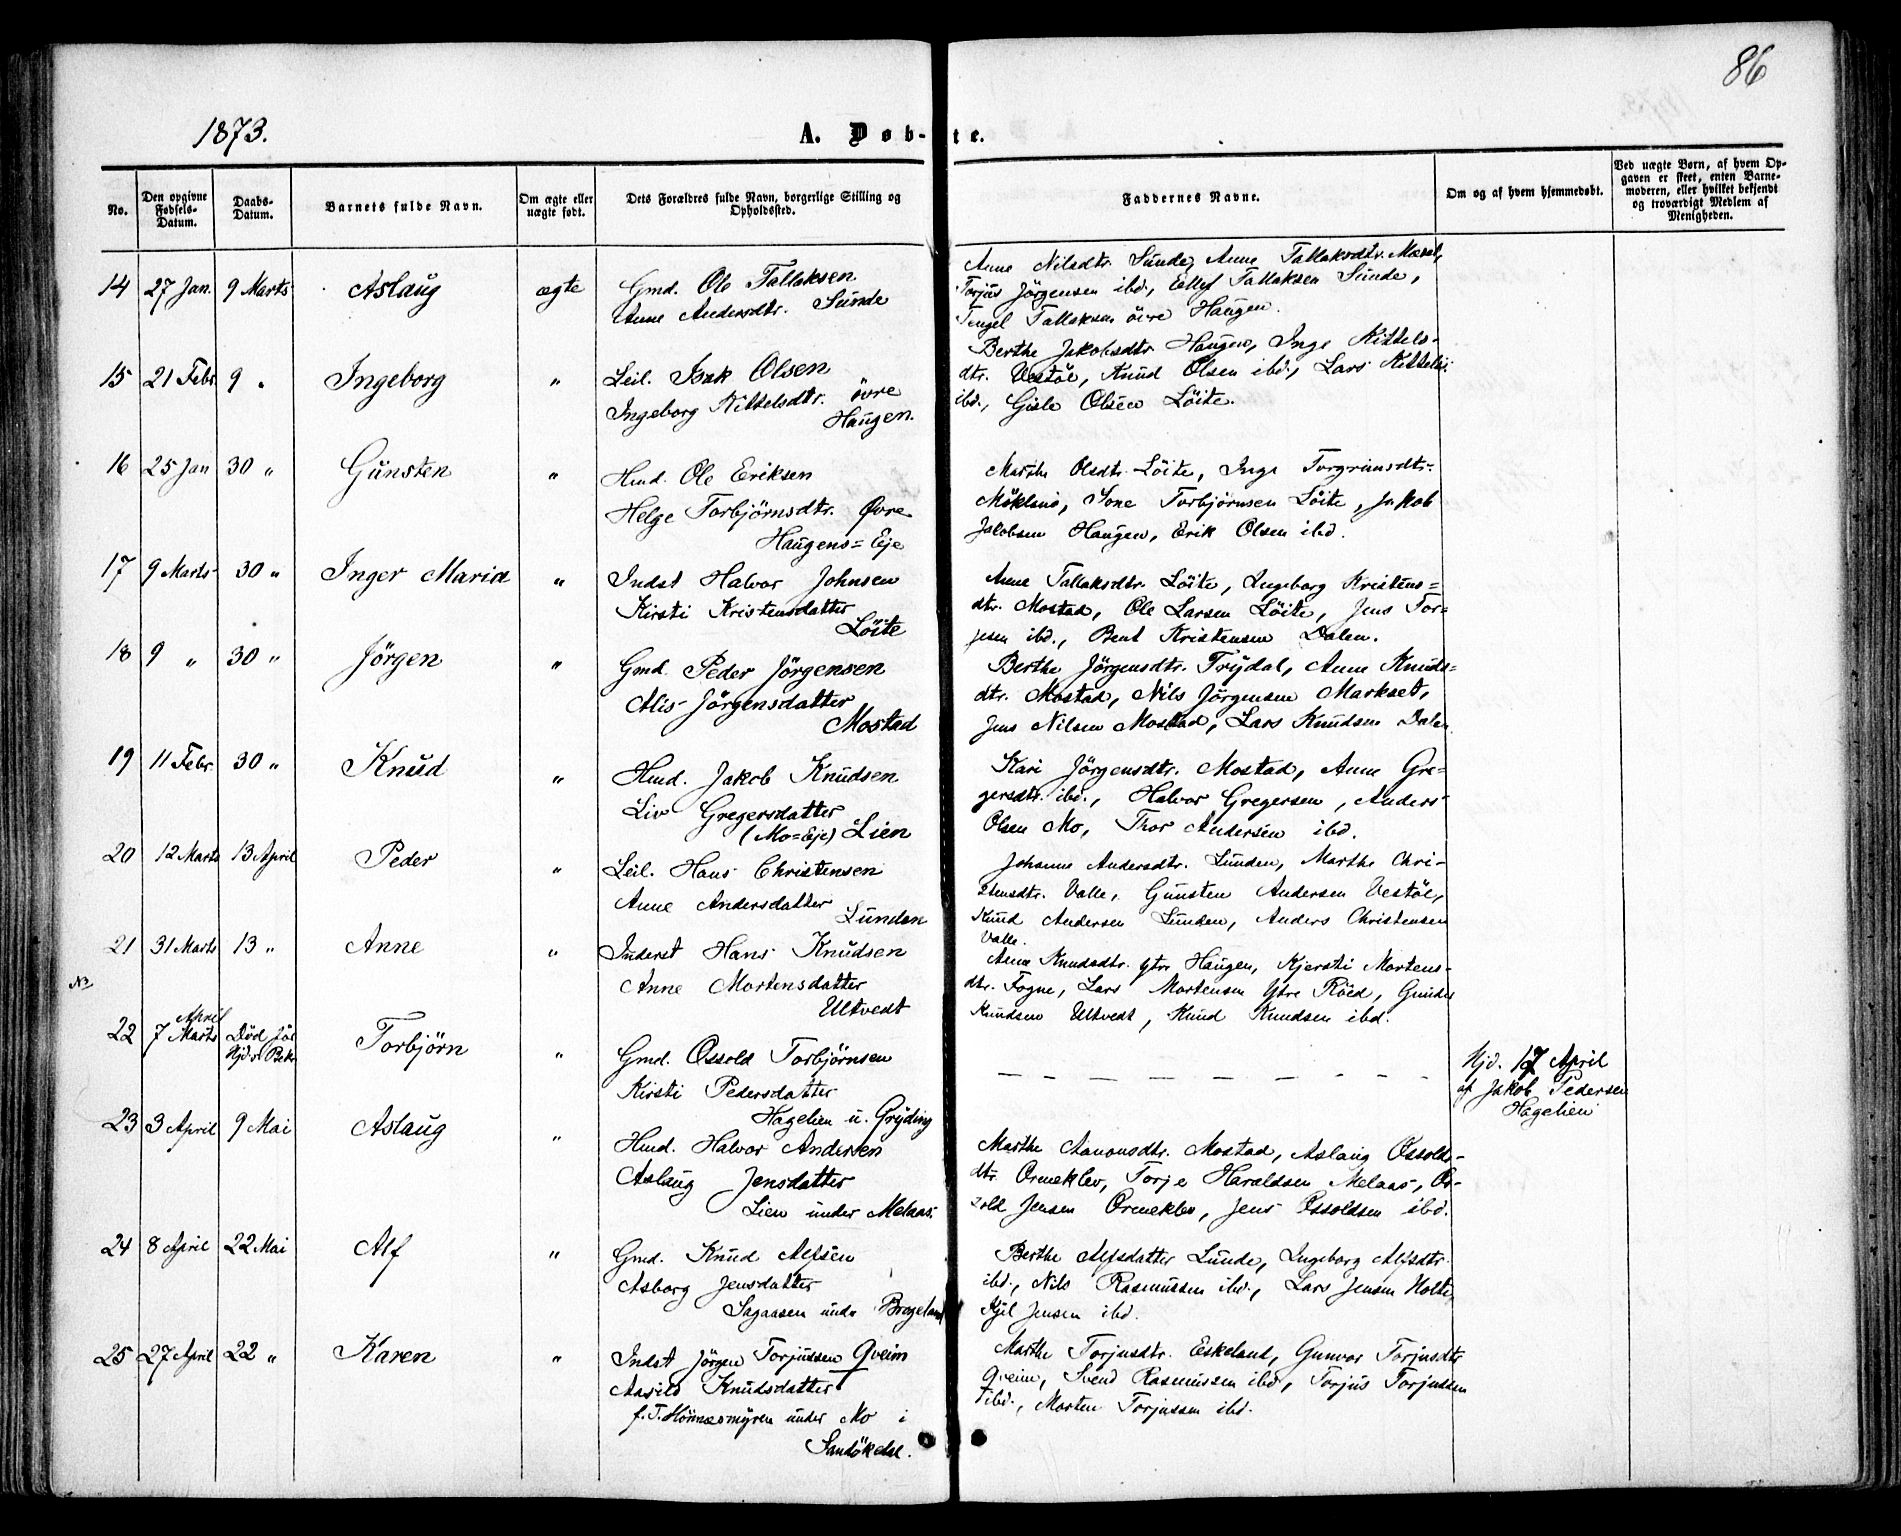 86
1873.
A. Døb-te.
No.
Den opgivne Fødsels-Datum.
Daabs-Datum.
Barnets fulde Navn.
Om ægte eller uægte født.
Dets Forældres fulde Navn, borgerlige Stilling og Opholdssted.
Faddernes Navne.
Om og af hvem hjemmedøbt.
Ved uægte Børn, af hvem Opgaven er skeet, enten Barnemoderen, eller hvilket bekjendt og troværdigt Medlem af Menigheden.
14 27 Jan. 9 Marts Aslaug ægte Gmd. Ole Tallaksen
Anne Andersdtr. Sunde
Anne Nilsdtr. Sunde, Anne Tallaksdtr.
Torjus Jörgensen ibd., Ellef Tallaksen Sunde,
Tengel Tallaksen övre Haugen.
15 21 Febr. 9 " Ingeborg " Leil. Isak Olsen
Ingeborg Kittelsdtr. övre
Haugen.
Berthe Jakobsdtr. Haugen, Inge Kittels-
dtr. Vestöl, Knud Olsen ibd., Lars Kittelsen
ibd., Gisle Olsen Löite.
16 25 Jan 30 " Günsten " Hmd. Ole Eriksen
Helge Torbjørnsdtr. Øvre
Haugens=Eje
Marthe Olsdtr. Löite, Inge Torgrimsdtr.
Tone Torbjörnsen Löite, Jakob
Jakobsen Haugen, Erik Olsen ibd.
17 9 Marts 30 " Inger Maria " Indst Halvor Johnsen
Kirsti Kristensdatter
Löite
Anne Tallaksdtr. Löite, Ingeborg Kristens=
dtr. Mostad, Ole Larsen Löite, Jens Tor=
jesen ibd., Bent Kristensen Dalen.
18 9 " 30 " Jörgen " Gmd. Peder Jörgensen
Alis Jörgensdatter
Mostad
Berthe Jörgensdtr. Trydal, Anne Knuds=
dtr. Mostad, Nils Jörgensen Markset,
Jens Nilsen Mostad, Lars Knudsen Dalen
19 11 Febr. 30 " Knud " Hmd. Jakob Knudsen
Liv Gregersdatter
(Mo=Eje) Lien
Kari Jörgensdtr. Mostad, Anne Gre=
gersdtr. ibd., Halvor Gregersen, Anders
Olsen Mo, Thor Andersen ibd.
20 12 Marts 13 April Peder " Leil. Hans Christensen
Anne Andersdatter
Lunden
Johanne Andersdtr. Lunden, Marthe Chri-
stensdtr. Valle, Gunsten Andersen Vestöl,
Knud Andersen Lunden, Anders Christensen
Valle.
21 31 Marts 13 " Anne " Inderst Hans Knudsen
Anne Mortensdatter
Ultvedt
Anne Knudsdtr. ytre Haugen, Kjersti Mortens-
dtr. Fogne, Lars Mortensen Ytre Röed, Gunder
Knudsen Ultvedt, Knud Knudsen ibd.
NB
22 7 Marts April Död för Torbjörn " Gmd. Ossold Torbjörnsen
Kirsti Pedersdatter
Hagelien u. Gryting
Hjd. 17 April
af Jakob Pedersen
Hagelien
23 3 April 9 Mai Aslaug " Hmd. Halvor Andersen
Aslaug Jensdatter
Lien under Melaas.
Marthe Aanonsdtr. Mostad, Aslaug Ossolds-
dtr. Ormeklev, Torje Haraldsen Melaas, Os-
sold Jensen Ormeklev, Jens Ossoldsen ibd.
24 8 April 22 Mai Alf " Gmd. Knud Alfsen
Asborg Jensdatter
Sagaasen under Brageland
Berthe Alfsdatter Lunde, Ingeborg Alfsdtr.
ibd., Nils Rasmussen ibd., Lars Jensen Holte,
Kjil Jensen ibd.
25 27 April 22 " Karen " Indst Jörgen Torjussen Qveim
Aasild Knudsdatter
f. T. under Mo i
Sandökedal.
Marthe Torjusdtr. Eskeland, Gunvor Torjusdtr
Qveim, Svend Rasmussen ibd., Torjus Torjussen
ibd., Morten Torjussen ibd.